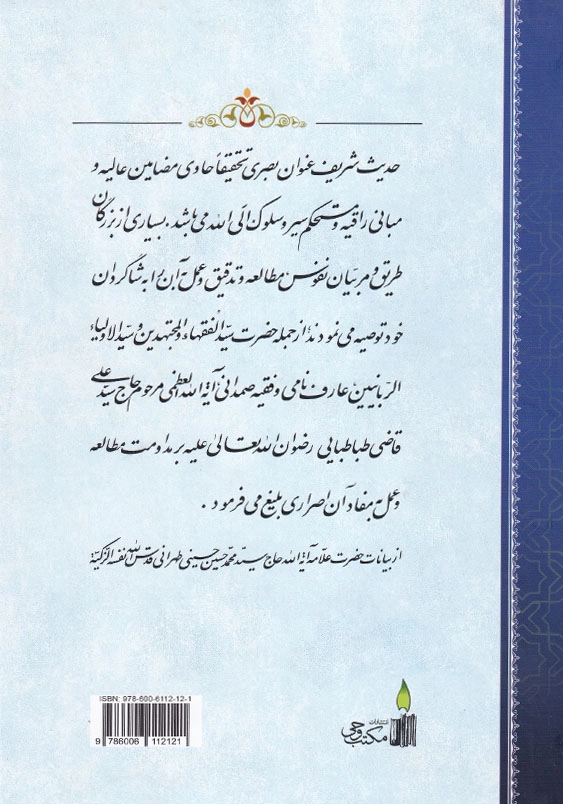 حدیث شریف عنوان بصری تحقیقاً حاوی مضامین عالیه و
مبانی راقیه و مستحکم سیر و سلوک الی الله می باشد. بسیاری از بزرگان
طریق و مربیان نفوس مطالعه و تدقیق و عمل به آن را به شاگردان
خود توصیه می نمودند؛ از جمله حضرت سیّد الفقهاء و المجتهدین و سیّد الاولیاء
الربانیین عارف نامی و فقیه صمدانی، آیة الله العظمی مرحوم حاج سیّد علی
قاضی طباطبایی رضوان الله تعالی علیه بر مداومت مطالعه
و عمل به مفاد آن اصراری بلیغ می فرمود.
از بیانات حضرت علّامه آیة الله حاج سیّد محمّد حسین حسینی طهرانی قدّس الله نفسه الزکیّة
ISBN: 978-600-6112-12-1
9 786006 112121
انتشارات
مکتب وحی